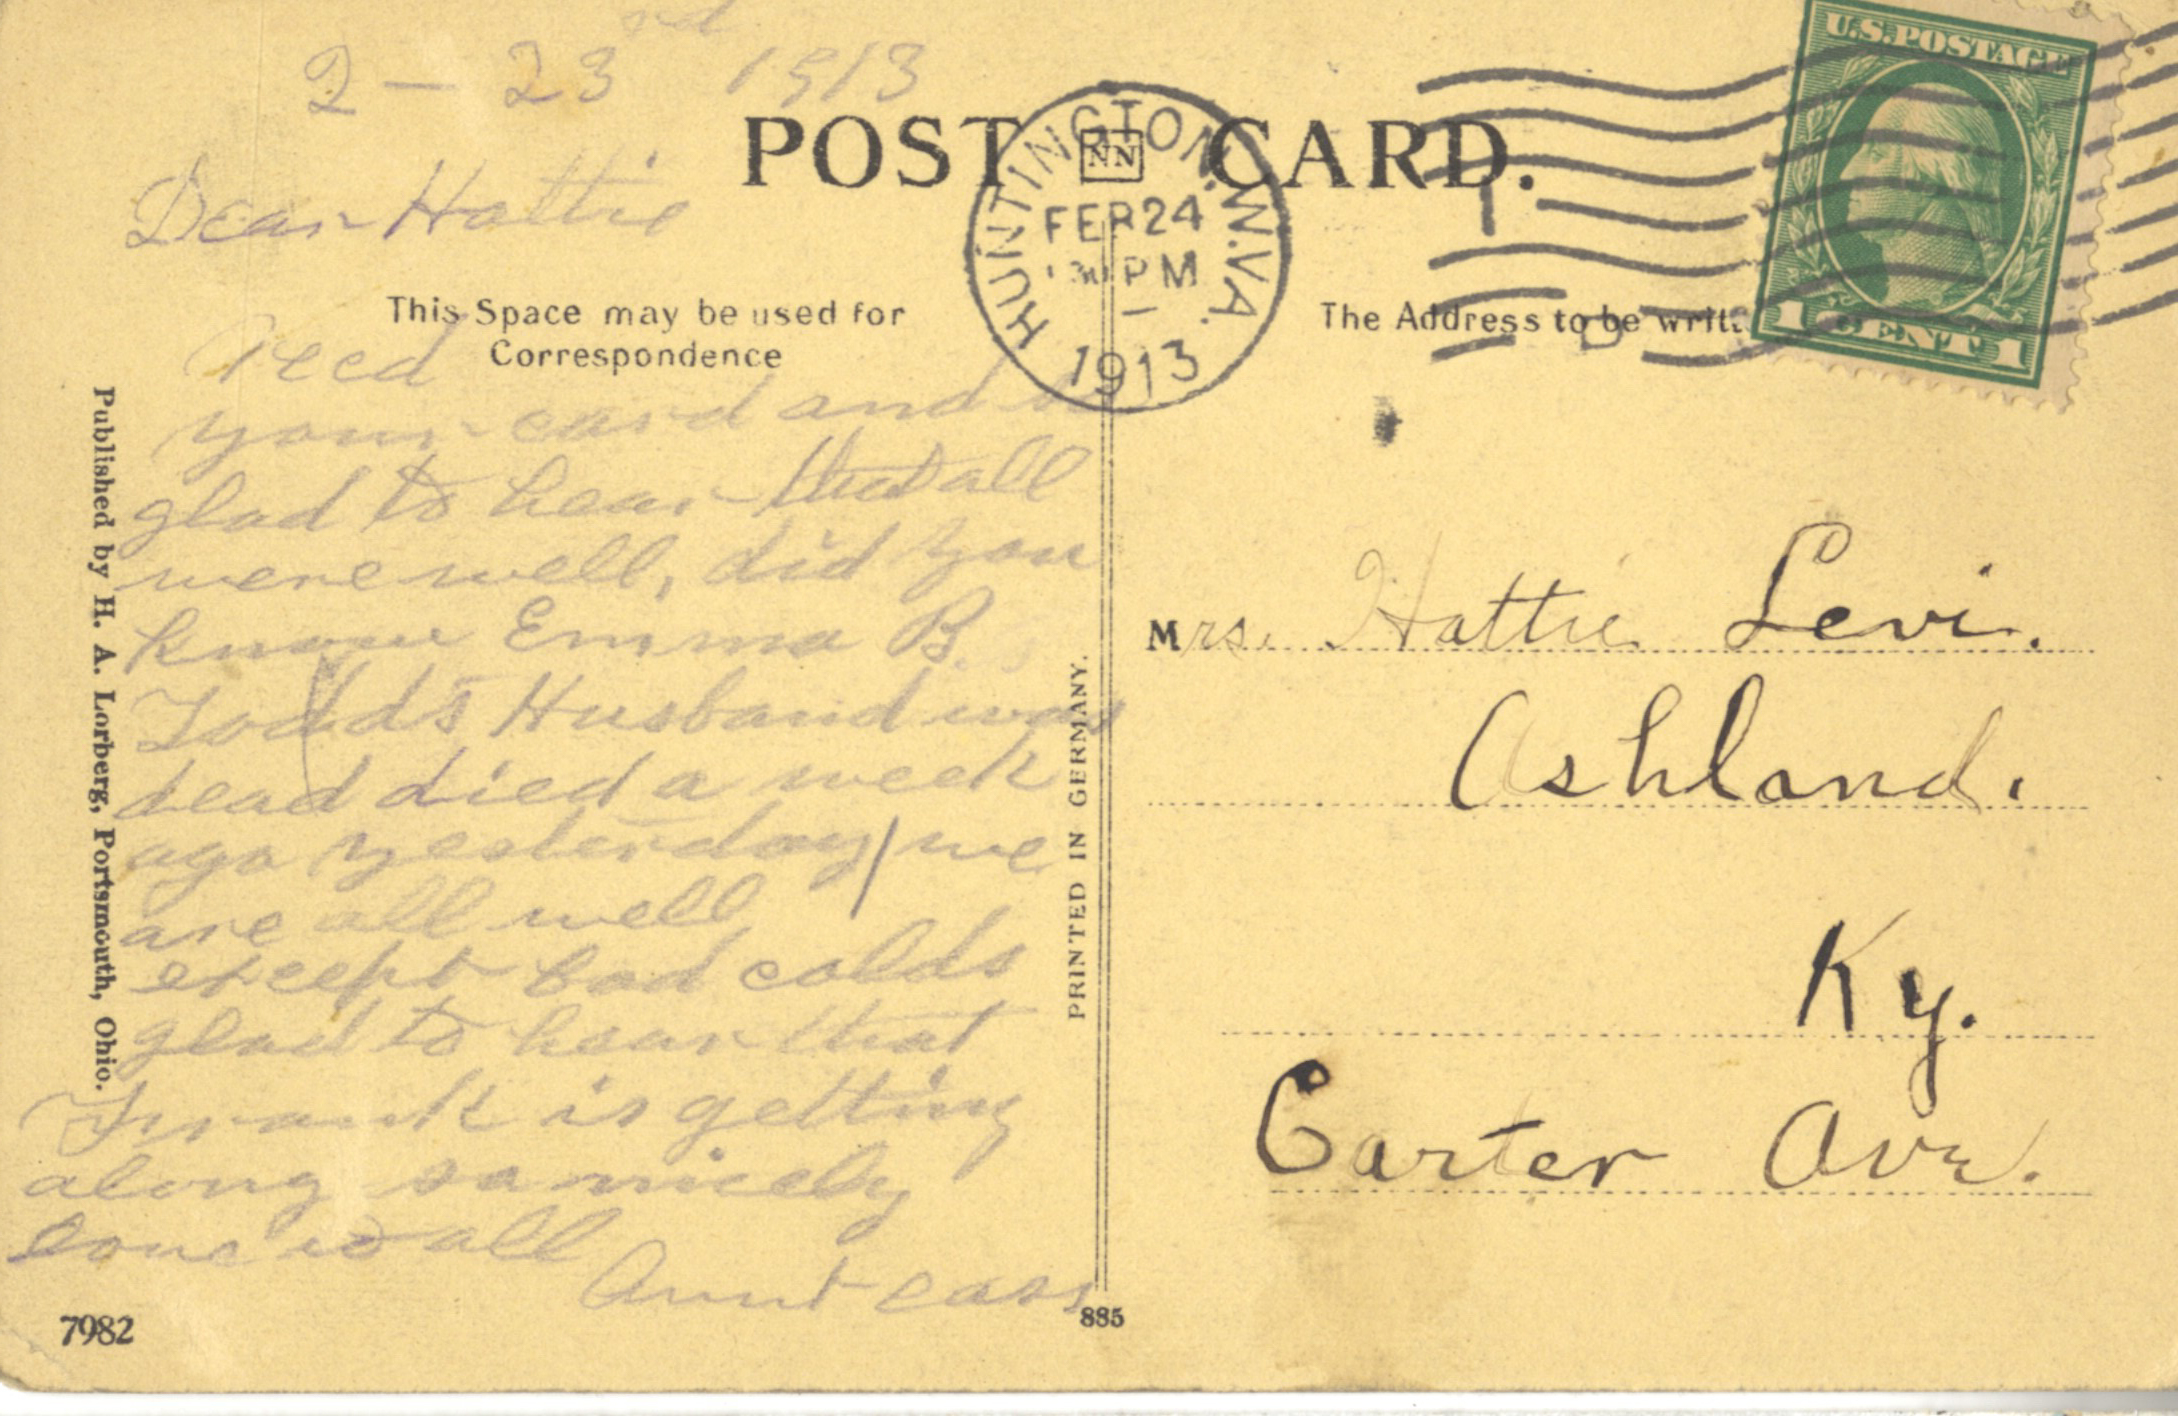 2 – 23rd 1913
POST CARD.
NN
HUNTINGTON. W.VA.
FEB 24
30 PM
1913
U.S. POSTAGE
1 CENT 1
Dear Hattie
This Space may be used for
Correspondence
The Address to be writt
Recd
your card and
glad to hear that all
were well, did you
know Emma B.
Todds Husband was
dead died a week
ago yesterday we
are all well
except bad colds
glad to hear that
Frank is getting
along so nicely
love to all
Aunt Cass
Published by H. A. Lorberg, Portsmouth, Ohio.
PRINTED IN GERMANY.
7982
885
Mrs. Hattie Levi.
Ashland.
Ky.
Carter Ave.